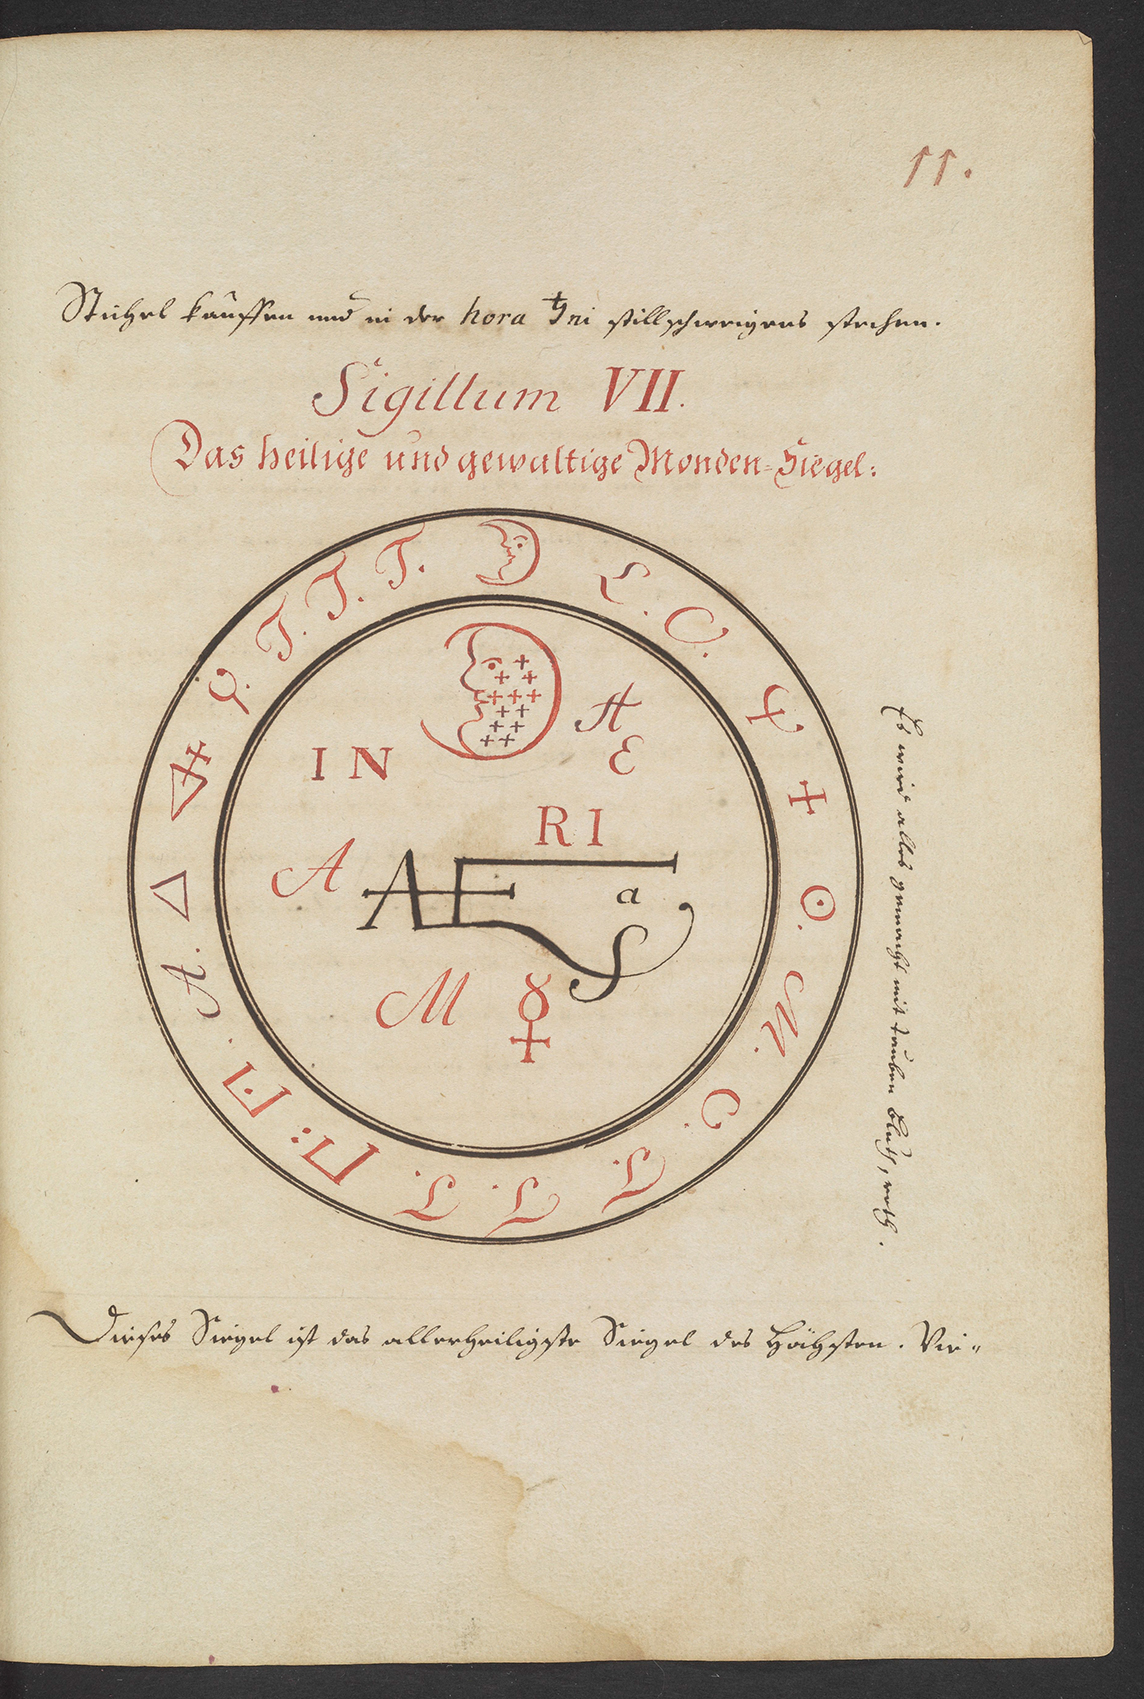 11.
Stichel kauffen und in der hora ♄ni stillschweigens stechen.
Sigillum VII.
Das heilige und gewaltige Monden-Siegel:
T. T. T. ☽ L. O. ♆ + ☉. M. C. L. L. L. A. △
A E
IN
RI
A
a
S
M ☿
Es wird alles gemacht mit tauben Blut, roth.
Dieses Siegel ist das allerheiligste Siegel des Höchsten. Vie-